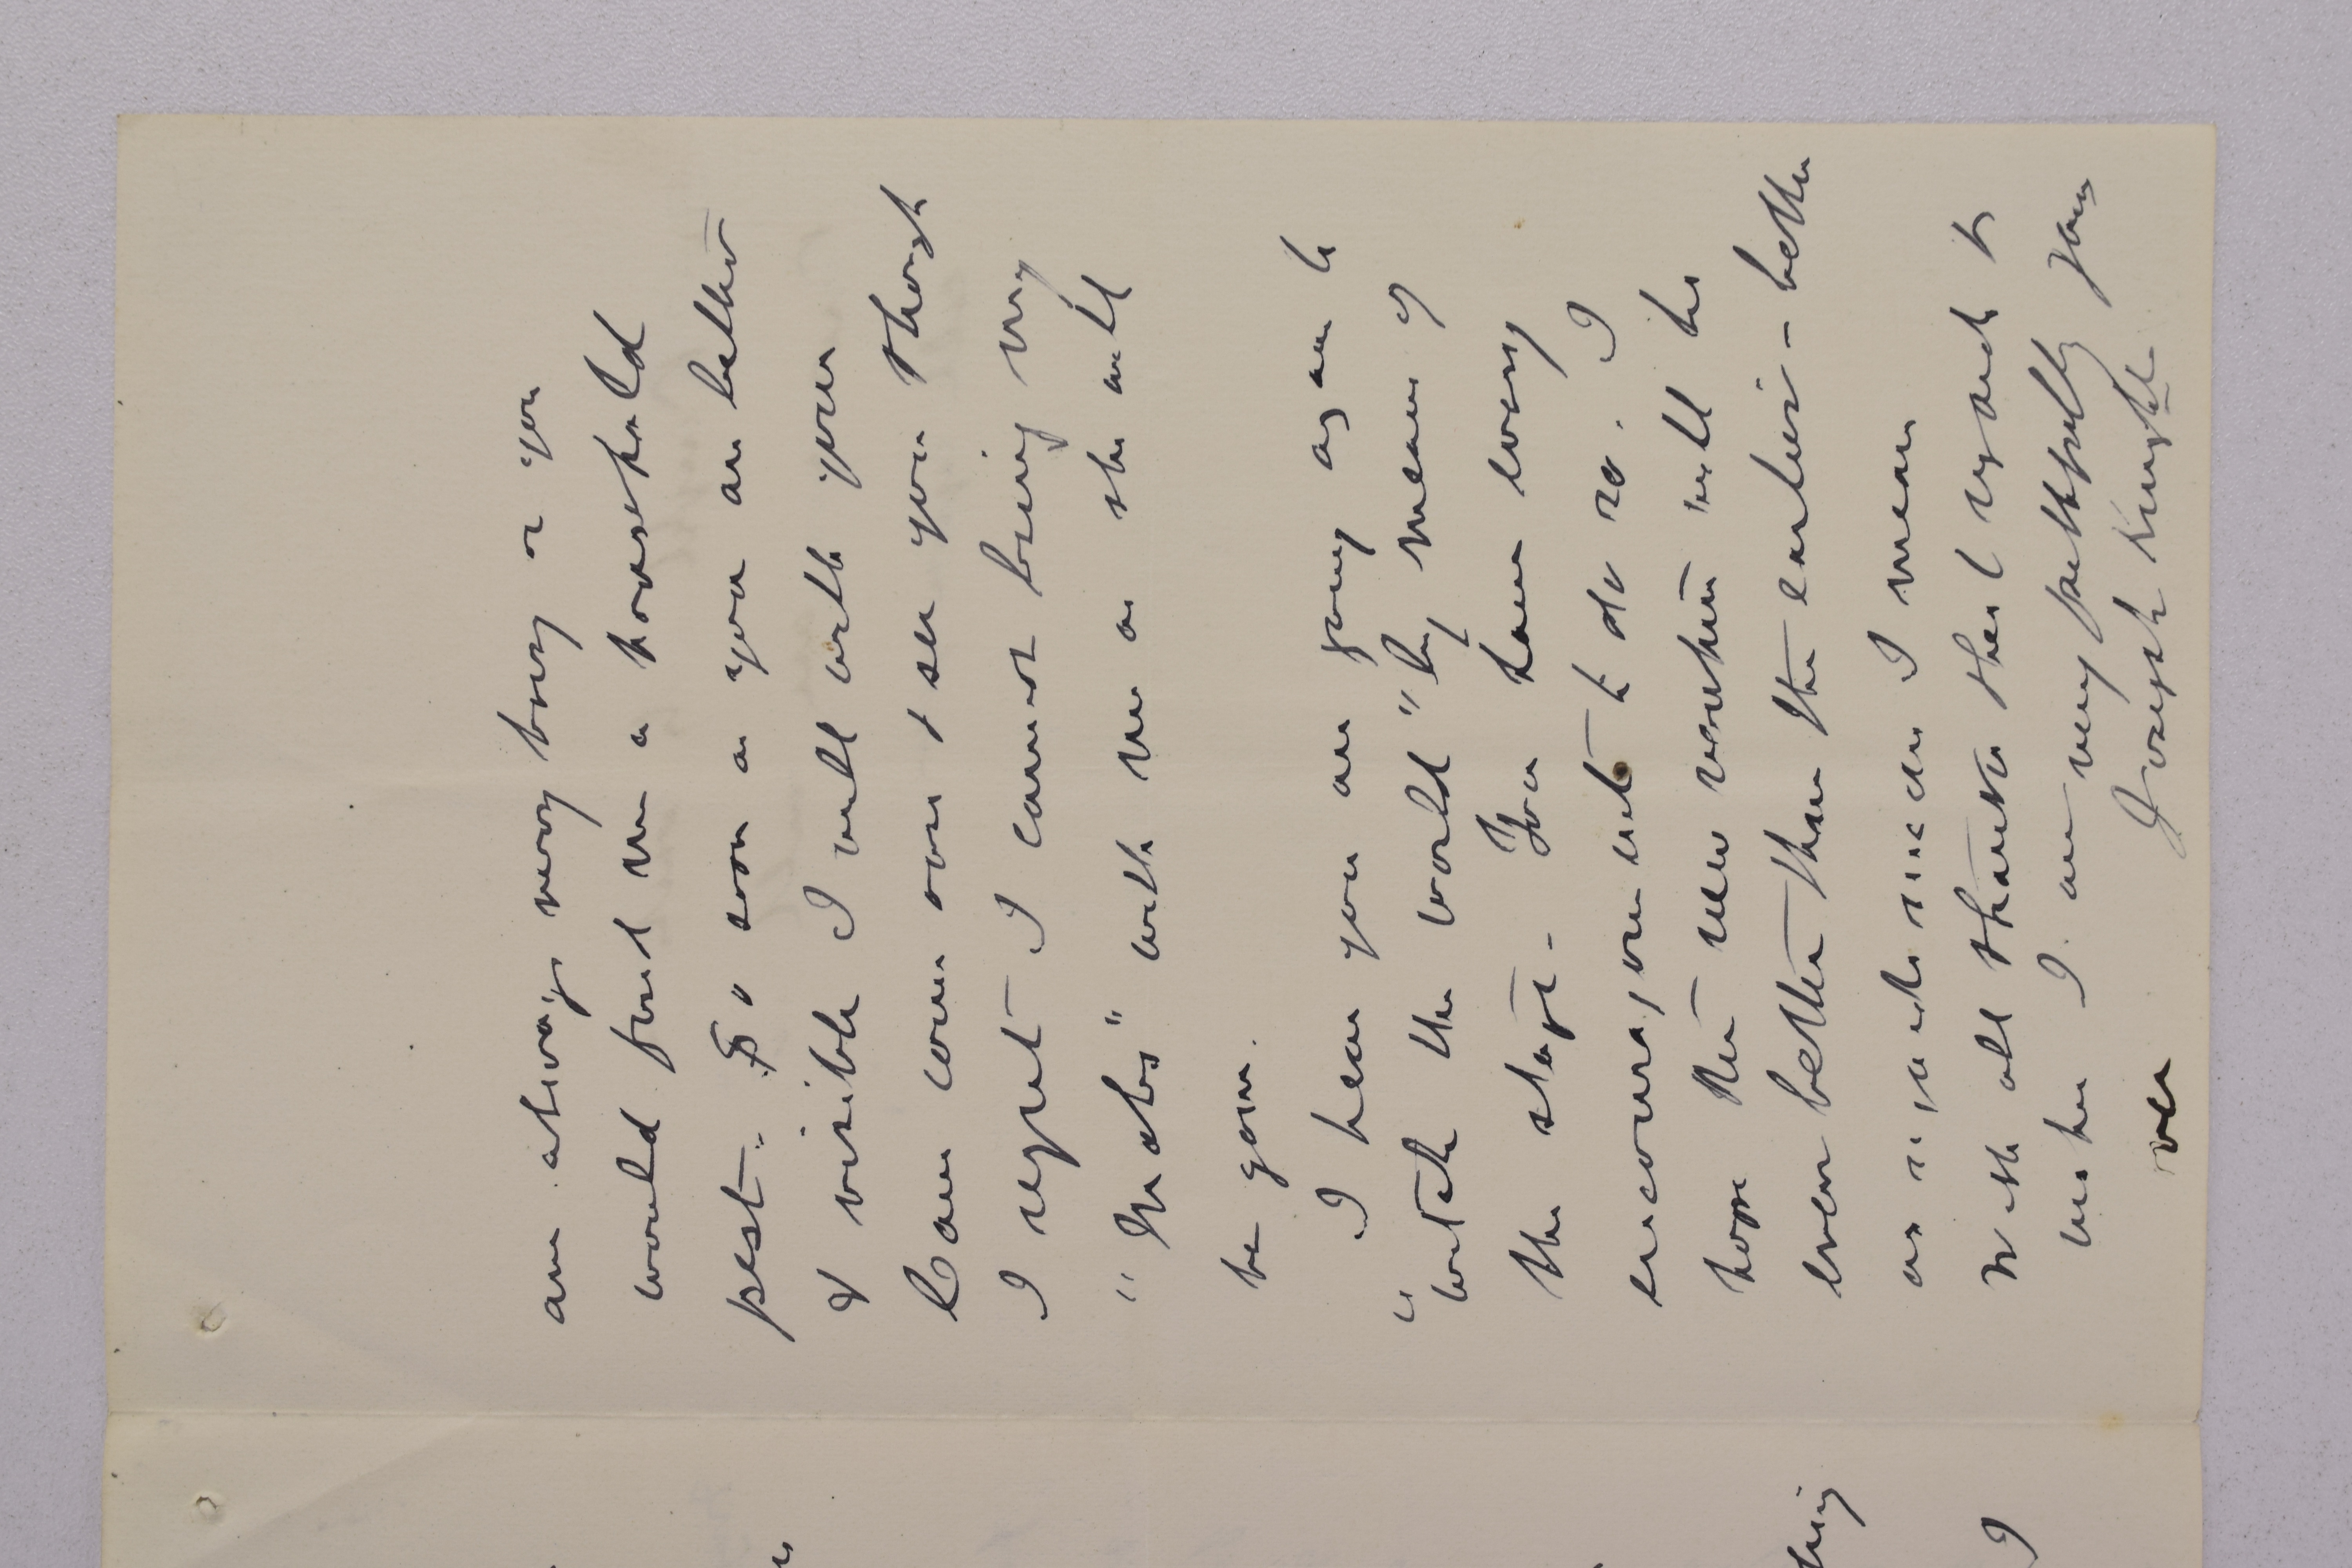 am always very busy or you
would find me a household
pest. As soon as you are better
& visible I will ask you
Can come over & see you though
I regret I cannot bring my
"Mabs" with me as she will
be gone.
I hear you are going again to
"watch the world" by means of
the stage - You have every
encouragement to do so. I
hope the new venture will be
even better than the earlier - better
as regards success I mean
With all thanks their regards &
wishes I am very faithfully yours
Joseph Knight
over
thing
I